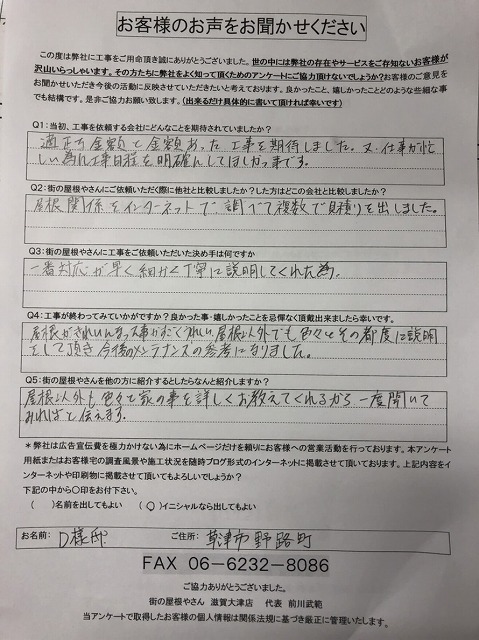 お客様のお声をお聞かせください
この度は弊社に工事をご用命頂き誠にありがとうございました。世の中には弊社の存在やサービスをご存知ないお客様が
沢山いらっしゃいます。その方たちに弊社をよく知って頂くためのアンケートにご協力頂けないでしょうか?お客様のご意見を
お聞かせいただき今後の活動に反映させていただきたいと考えております。良かったこと、嬉しかったことどのような些細な事
でも結構です。是非ご協力お願い致します。(出来るだけ具体的に書いて頂ければ幸いです)
Q1:当初、工事を依頼する会社にどんなことを期待されていましたか?
適正な金額と金額あった工事を期待しました。又、仕事が忙
しい為に工事日程を明確にしてほしかったです。
Q2:街の屋根やさんにご依頼いただく際に他社と比較しましたか?した方はどこの会社と比較しましたか?
屋根関係をインターネットで調べて複数で見積りを出しました。
Q3:街の屋根やさんに工事をご依頼いただいた決め手は何ですか
一番対応が早く細かく丁寧に説明してくれた為。
Q4:工事が終わってみていかがですか?良かった事・嬉しかったことを忌憚なく頂戴出来ましたら幸いです。
屋根がきれいになった事がすごくうれしい。屋根以外でも色々とその都度に説明
をして頂き今後のメンテナンスの参考になりました。
Q5:街の屋根やさんを他の方に紹介するとしたらなんと紹介しますか?
屋根以外も色々と家の事を詳しくお教えてくれるから一度聞いて
みればと伝えます。
*弊社は広告宣伝費を極力かけない為にホームページだけを頼りにお客様への営業活動を行っております。本アンケート
用紙またはお客様宅の調査風景や施工状況を随時ブログ形式のインターネットに掲載させて頂いております。上記内容をイ
ンターネットや印刷物に掲載させて頂いてもよろしいでしょうか?
下記の中から〇印をお付下さい。
( )名前を出してもよい (○)イニシャルなら出してもよい
お名前: D様邸 ご住所: 草津市野路町
FAX 06-6232-8086
ご協力ありがとうございました。
街の屋根やさん 滋賀大津店 代表 前川武範
当アンケートで取得したお客様の個人情報は関係法規に基づき厳正に管理いたします。